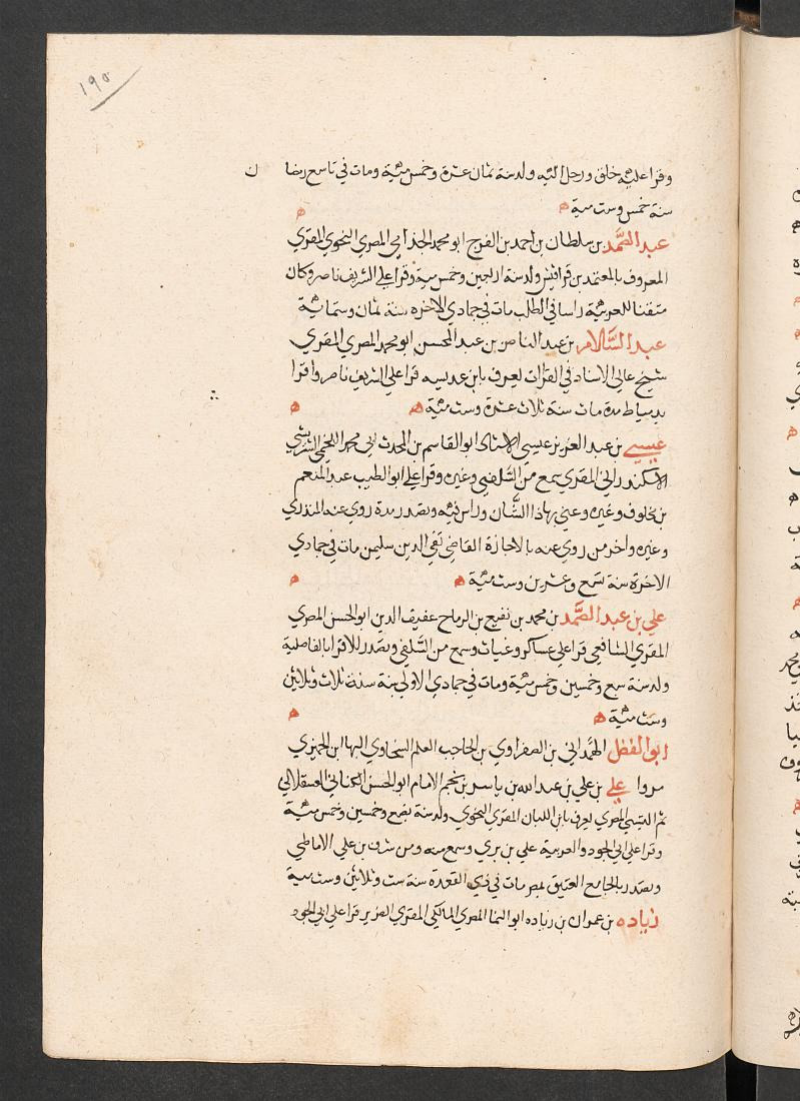 ١٩٥
وقرا عليه خلق ورحل اليه ولد سنة ثمان عشرة وخمس مئية ومات في تاسع رمضا ن
سنة خمس وست مية ه
عبد الصَّمد بن سلطان بن احمد بن الفرج ابو محمد الجذامي المصري النحوي المقري
المعروف بالمعتمد بن قراقيش ولد سنة اربعين وخمس مية وقرا علي الشريف ناصر وكان
متقنا للعربية راسا في الطلب مات في جمادي الاخره سنة ثمان وستماية
عبد السَّلام بن عبد الناصر بن عبد المحسن ابو محمد المصري المقري
شيخ عالي الاسناد في القرات يعرف بابن عديسه قرا علي الشريف ناصر واقرا
بدمياط مدة مات سنة ثلاث عشرة وست مئية ه ه
عيسي بن عبد العزيز بن عيسي الاستاذ ابو القاسم بن المحدث ابي محمد اللخمي الشريشي
الاسكندراني المقري سمع من السَّلفي وغيره وقرا علي ابو الطيب عبد المنعم
بن خلوف وغيره وعني بهاذا الشَّان وراس فيه وتصدر مدة روي عنه المنذري
وغيره واخر من روي عنه بالاجازة القاضي تقي الدين سليمن مات في جمادي
الاخرة سنة تسع وعشرين وست مئية ه ه
علي بن عبد الصَّمد بن محمد بن نفيع بن الرماح عفيف الدين ابو الحسن المصري
المقري الشافعي قرا علي عساكر وغياث وسمع من السَّلفي وتصدر للاقرا بالفاضلية
ولد سنة سبع وخمسين وخمس مئية ومات في جمادي الاولي سنة ثلاث وثلاثين
وست مئية ه ه
ابو الفضل الهمداني بن الصفراوي بن الحاجب العلم السخاوي البها ابن الجميزي
مروا علي بن علي بن عبد الله بن ياسر بن نجم الامام ابو الحسن الكناني العسقلاني
ثم التنيسي المصري يعرف بابن اللبان المقري النحوي ولد سنة بضع وخمسين وخمس مئية
وقرا علي ابي الجود والعربية علي بن بري وسمع منه ومن شرف بن علي الاماطي
وتصدر بالجامع العتيق بمصر مات في ذي القعدة سنة ست وثلاثين وست مية
زياده بن عمران بن زياده ابو النما المصري المالكي المقري الضرير قرا علي ابي الجود